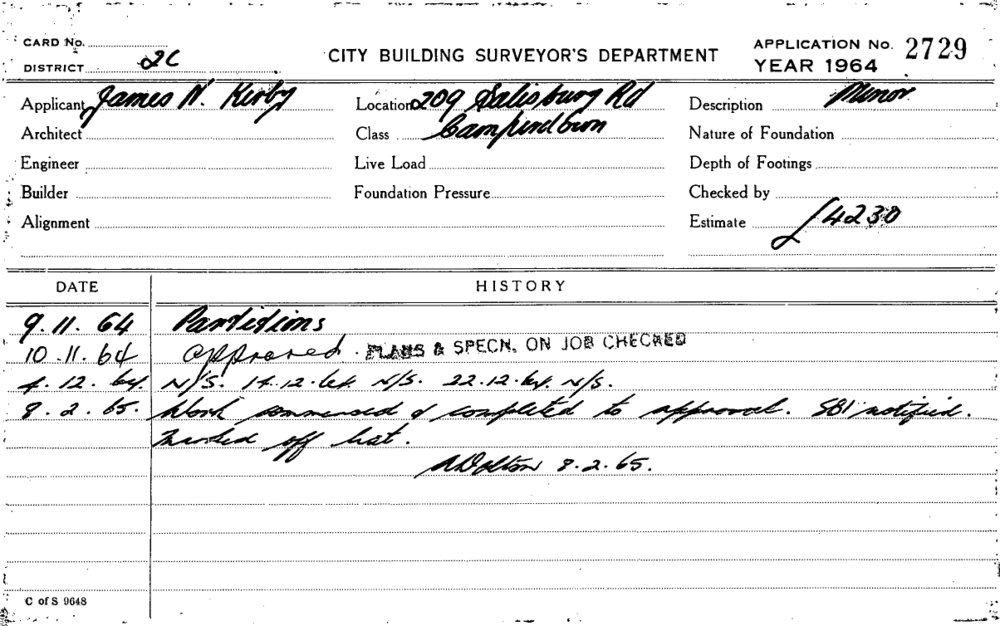 CARD No.
DISTRICT 2C
CITY BUILDING SURVEYOR'S DEPARTMENT
APPLICATION No. 2729
YEAR 1964
Applicant James N. Kirby
Location 209 Salisbury Rd
Description Minor
Architect
Class Camperdown
Nature of Foundation
Engineer
Live Load
Depth of Footings
Builder
Foundation Pressure
Checked by
Alignment
Estimate £4230
DATE HISTORY
9.11.64 Partitions
10.11.64 Approved. PLANS & SPECN. ON JOB CHECKED
4.12.64. N/S. 14.12.64 N/S. 22.12.64. N/S.
8.2.65. Work commenced & completed to approval. SBI notified.
Marked off list.
8.2.65.
C of S 9648